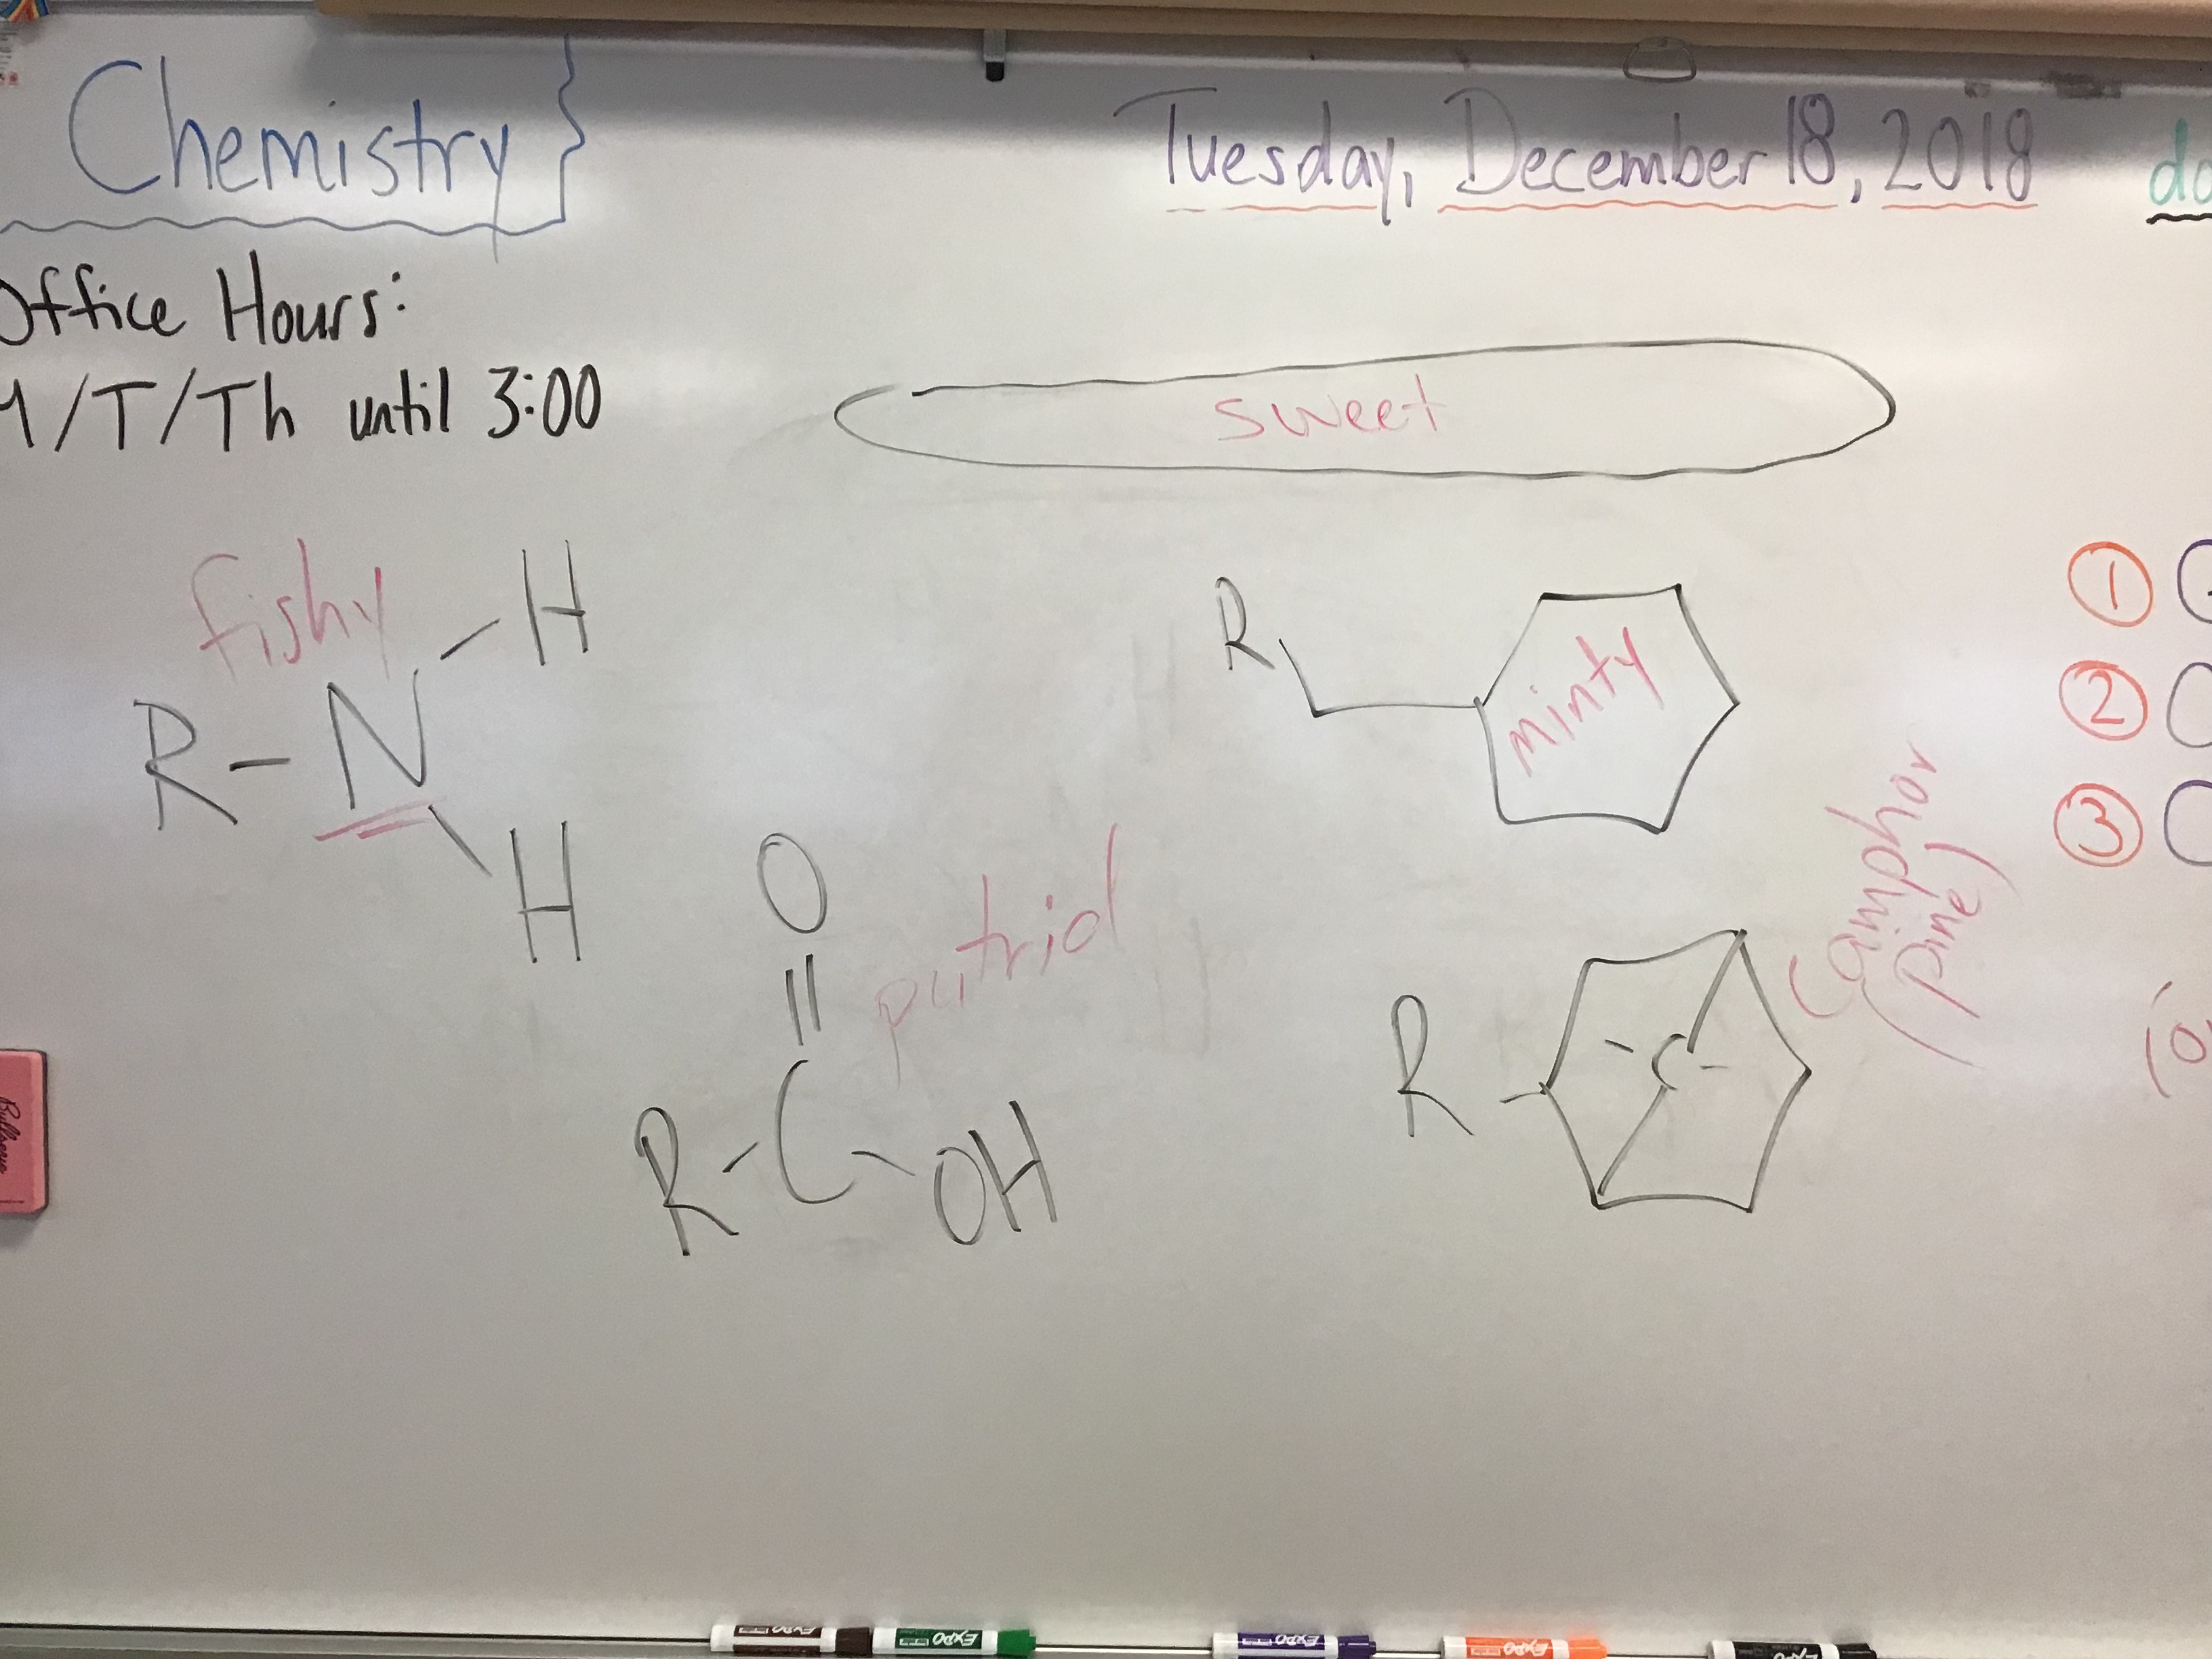 Chemistry
Tuesday, December 18, 2018
do
Office Hours:
M/T/Th until 3:00
sweet
fishy
R-N-H
H
R
minty
1
2
3
camphor
(pine)
O
putrid
R-C-OH
R
-C-
EXPO
EXPO
EXPO
EXPO
EXPO